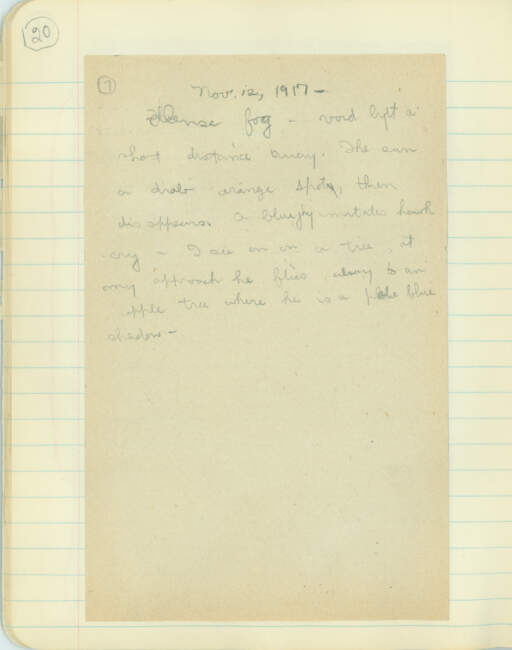 20
7
Nov. 12, 1917 -
dense fog - void but a
short distance away. The sun
a drab orange spot, then
disappears. A bluejay imitate hawk
cry - I see on in a tree, at
my approach he flies away to an
apple tree where he is a pale blue
shadow -